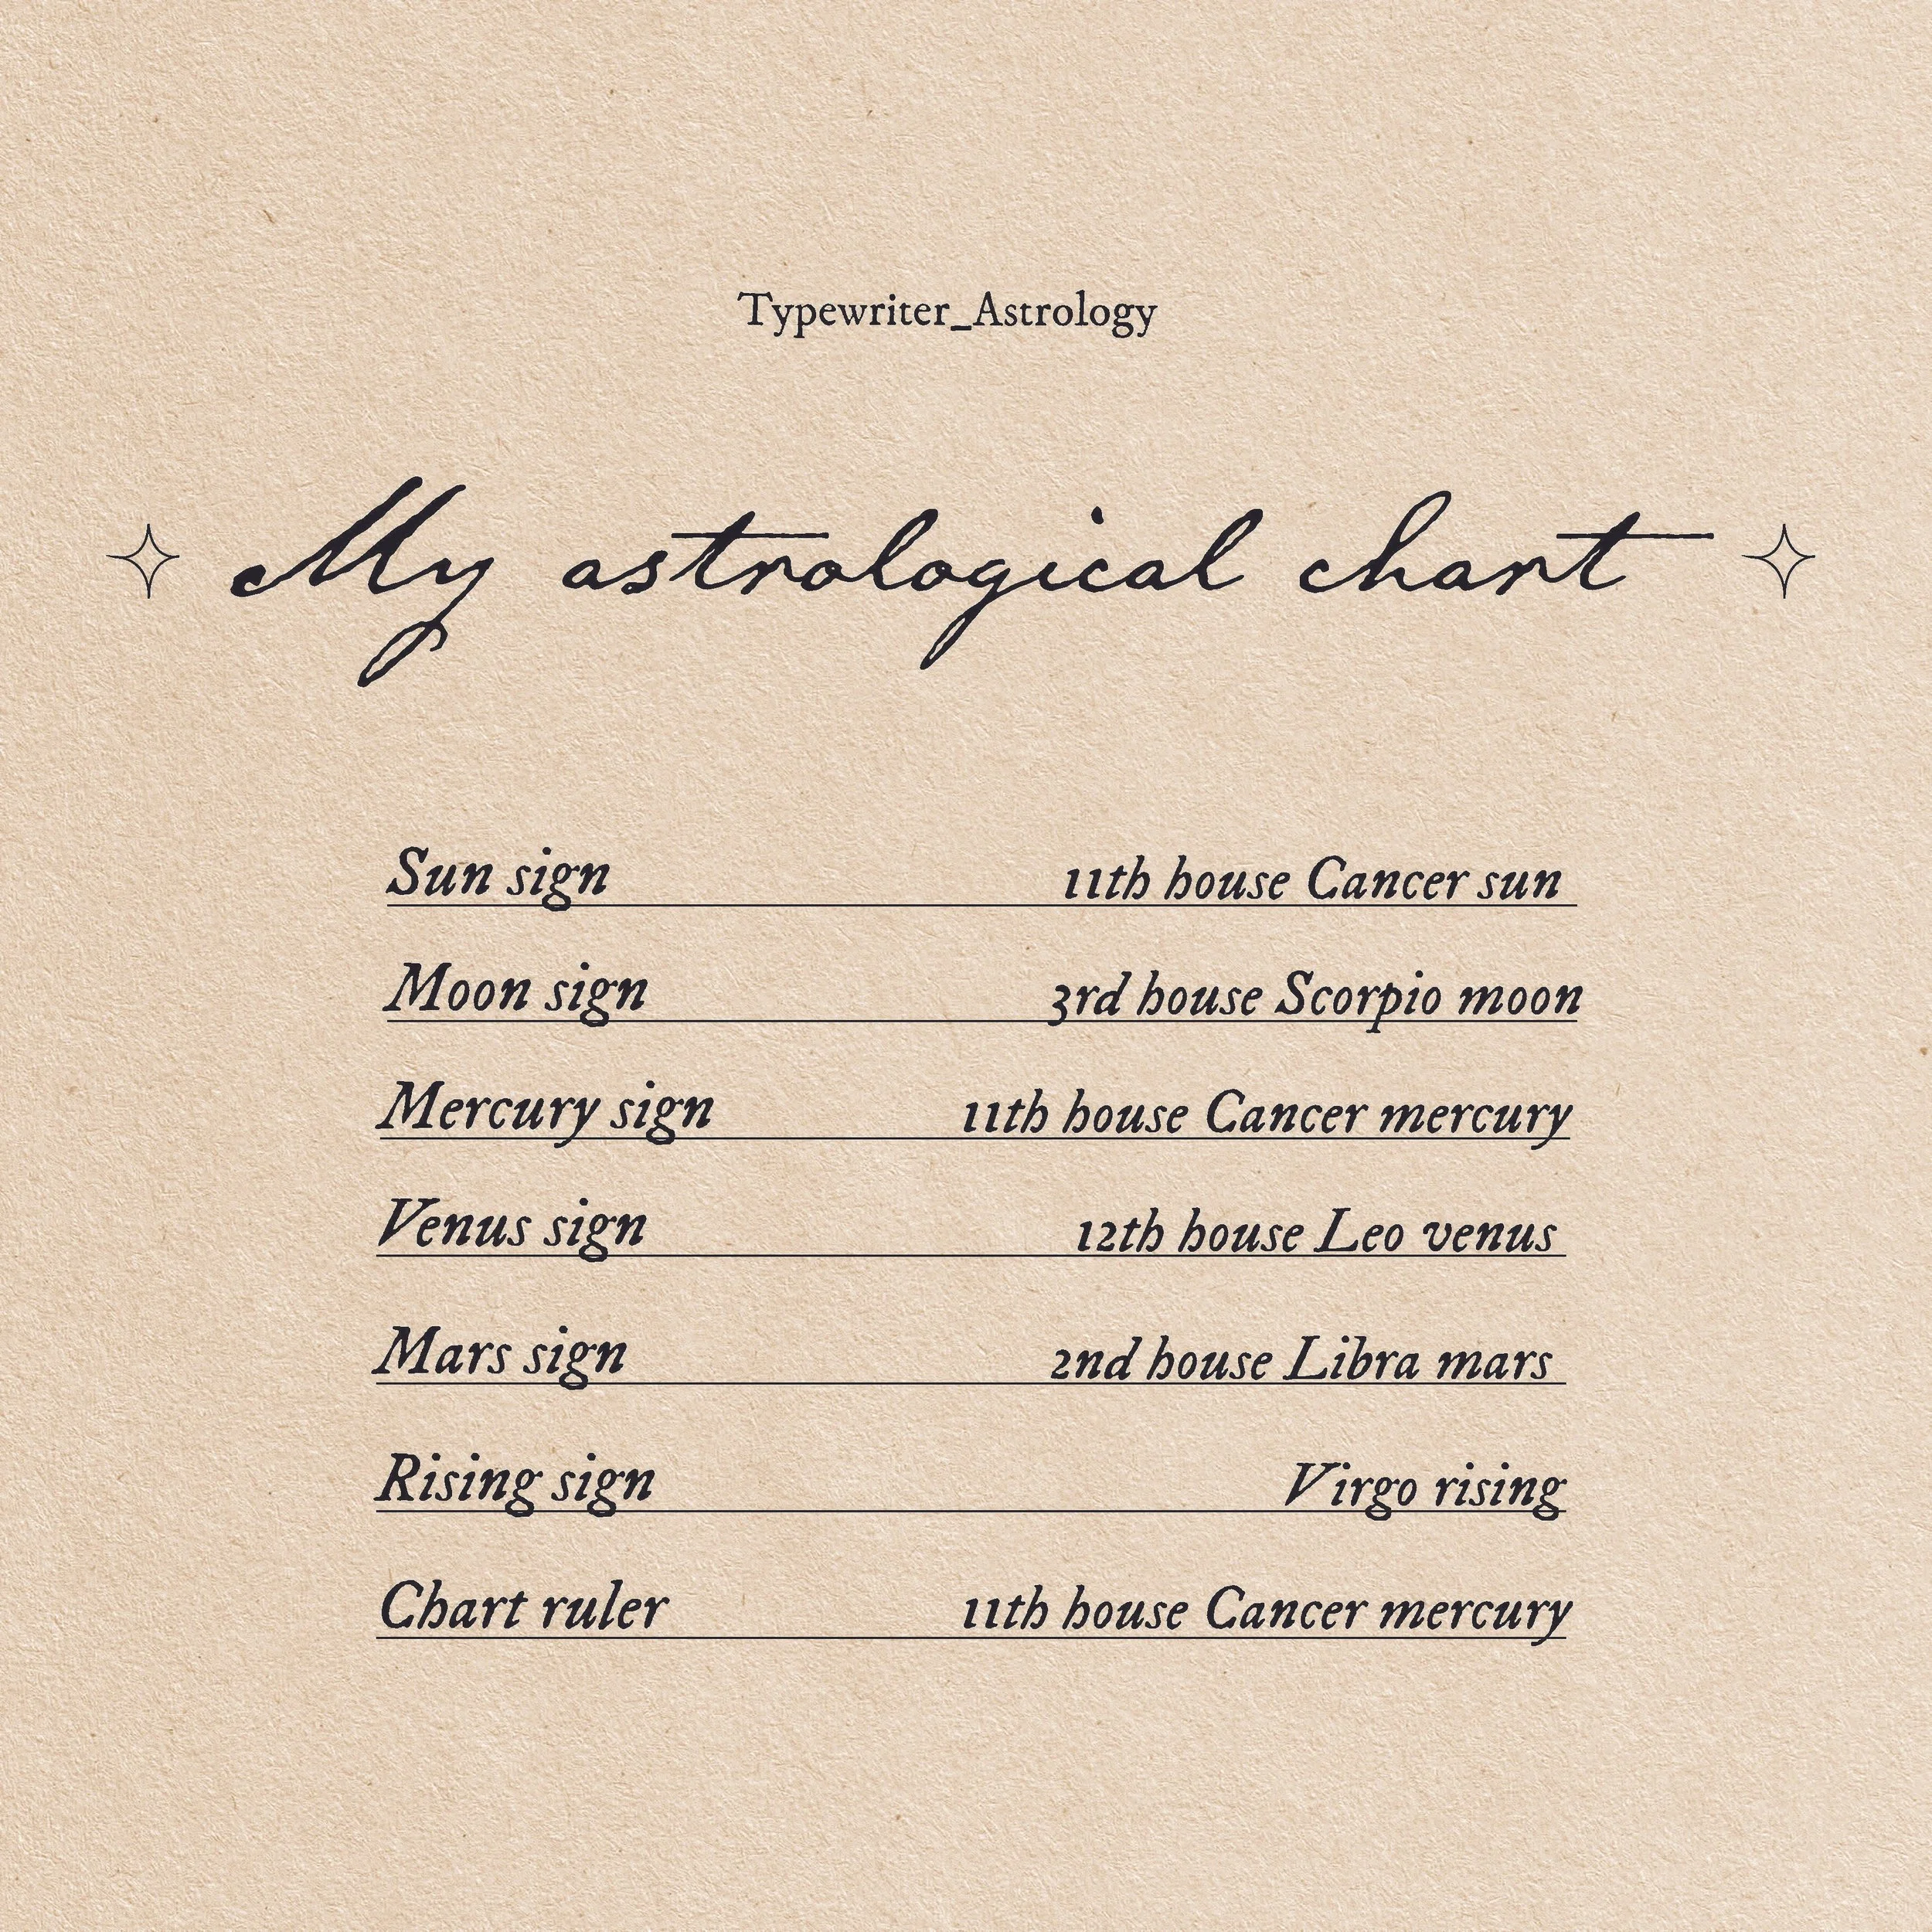 Typewriter_Astrology
My astrological chart
Sun sign 11th house Cancer sun
Moon sign 3rd house Scorpio moon
Mercury sign 11th house Cancer mercury
Venus sign 12th house Leo venus
Mars sign 2nd house Libra mars
Rising sign Virgo rising
Chart ruler 11th house Cancer mercury